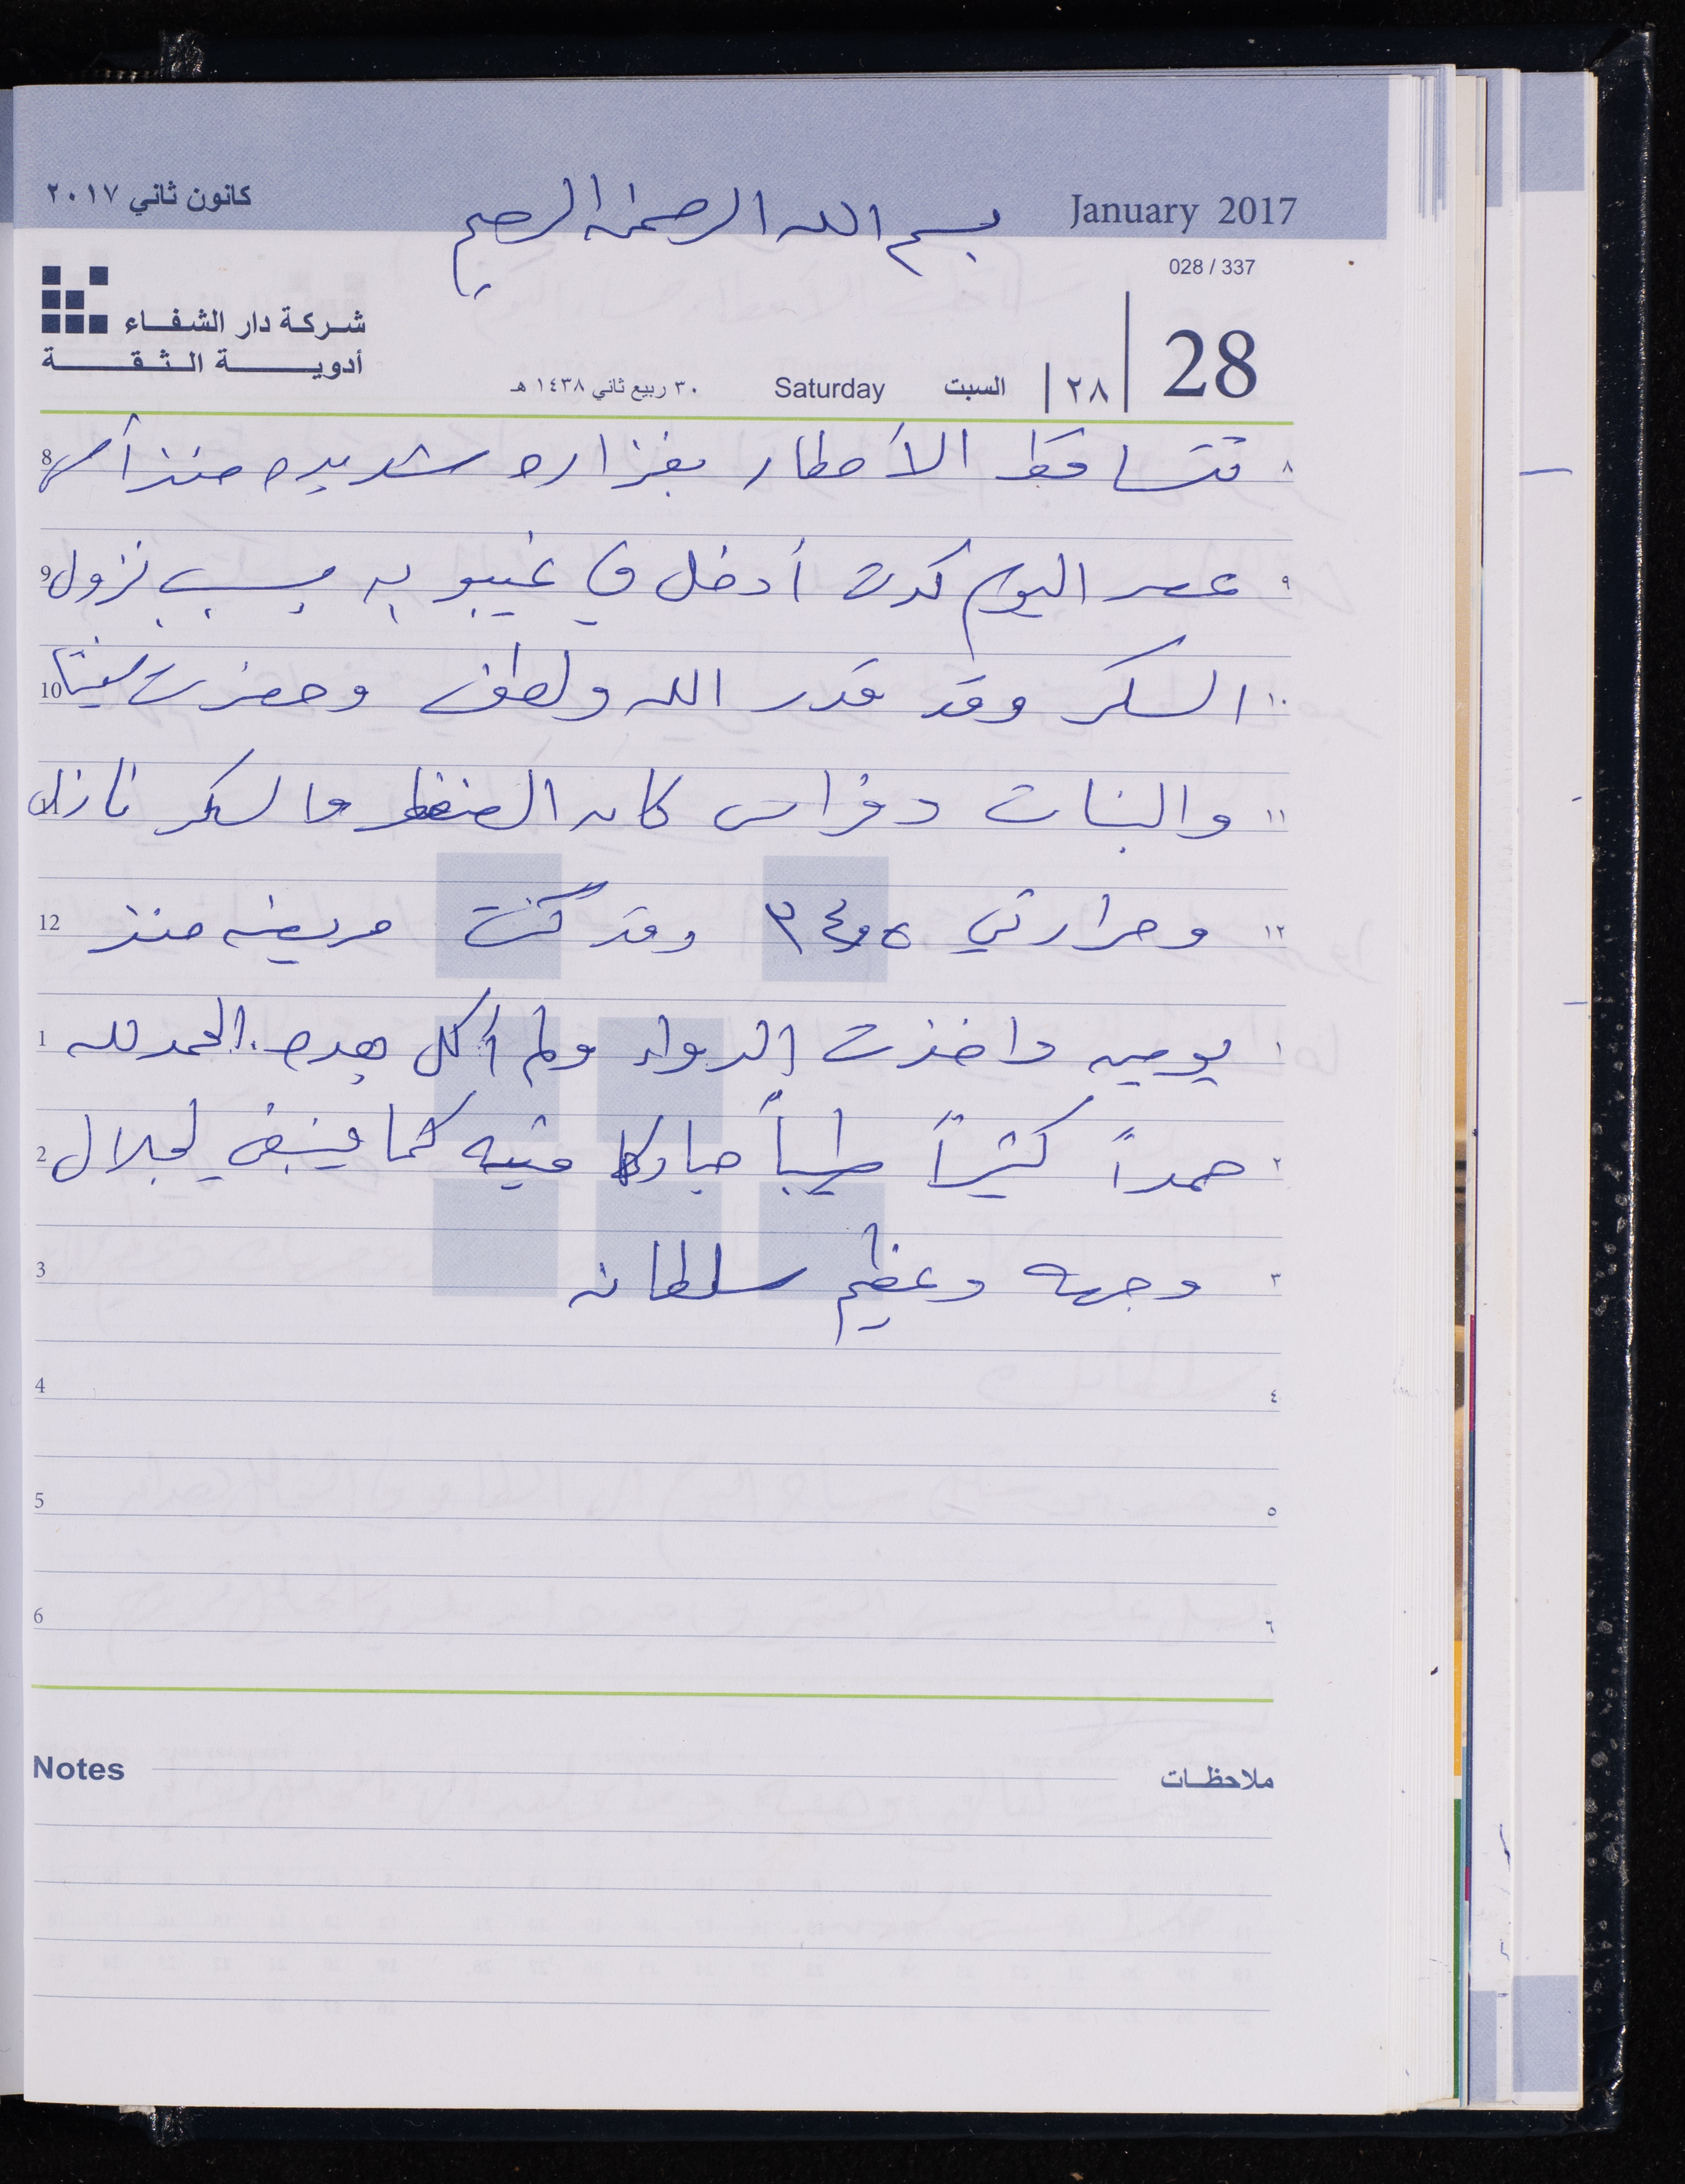 كانون ثاني ٢٠١٧
بسم الله الرحمن الرحيم
January 2017
028 / 337
شركة دار الشفاء
أدوية الثقة
28
٢٨
السبت
Saturday
٣٠ ربيع ثاني ١٤٣٨ هـ
8 تتساقط الأمطار بغزاره شديده منذ أمس ٨
9 عصر اليوم كدت أدخل في غيبوبه بسبب نزول ٩
10 السكر وقد قدر الله ولطف وحضرت ١٠
والبنات وفراس كان الضغط والسكر نازل ١١
12 وحرارتي ٣٤,٥ وقد كنت مريضه منذ ١٢
1 يومين واخذت الدواء ولم أكل بعده. الحمد لله ١
2 حمداً كثيراً طيباً مباركا فيه كما ينبغي لجلال ٢
3 وجهه وعظيم سلطانه ٣
4 ٤
5 ٥
6 ٦
Notes ملاحظات